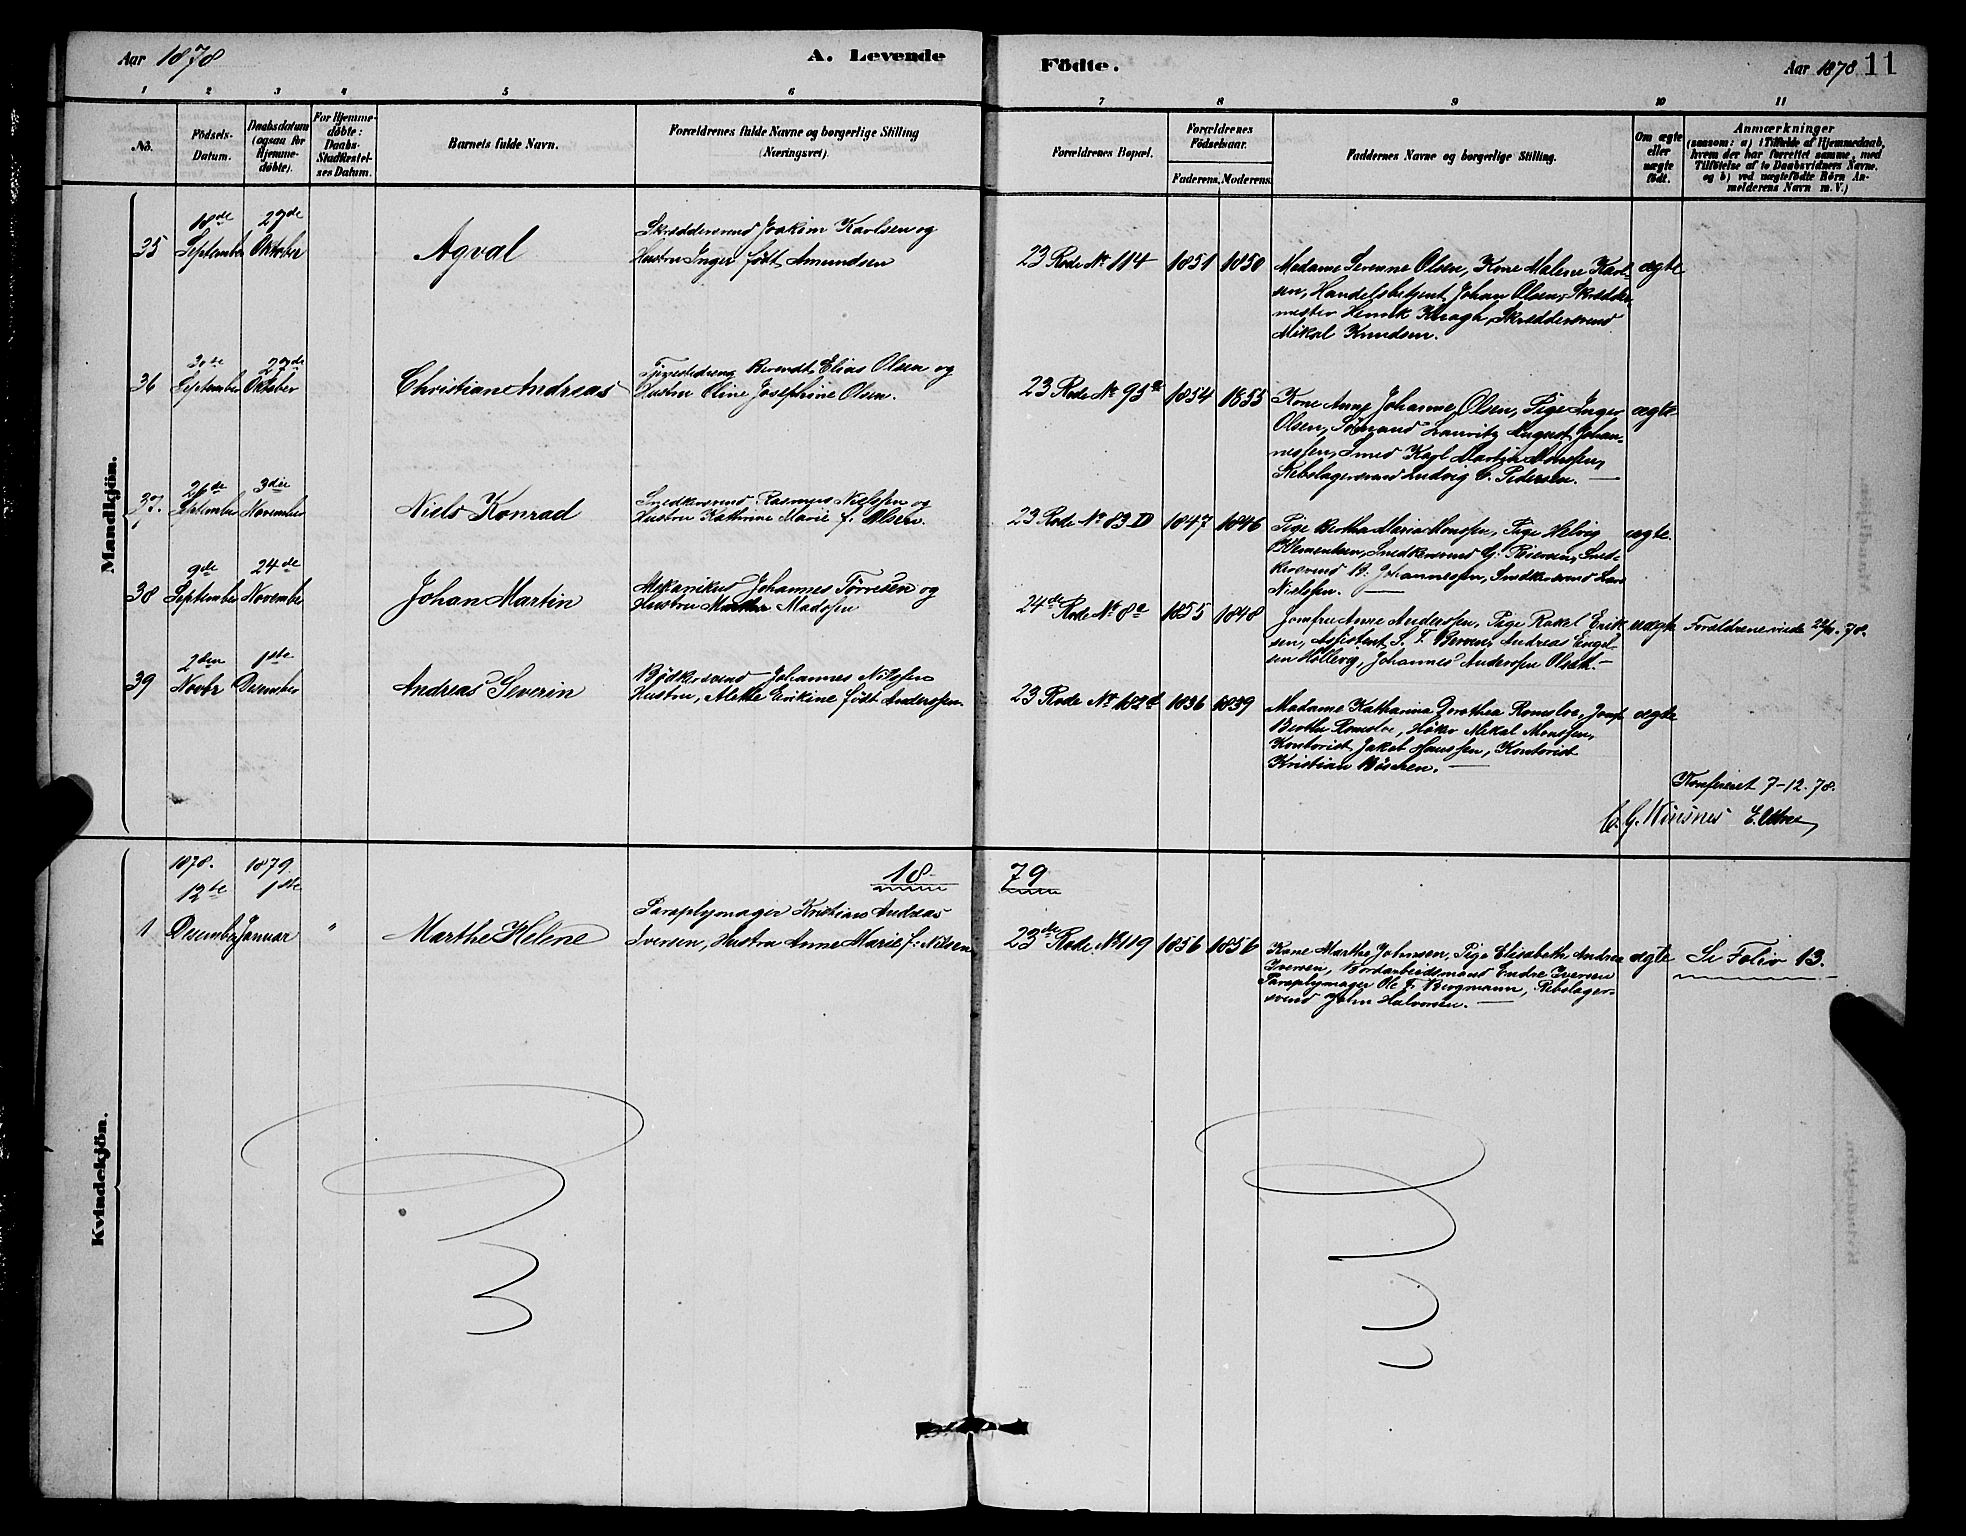 Aar 1878
A. Levende
Födte.
Aar 1878 11
1 2 3 4 5 6 7 8 9 10 11
No.
Födsels-
Datum.
Daabsdatum
(ogsaa for
Hjemme-
döbte).
For Hjemme-
døbte:
Daabs-
Stadfæstel-
ses Datum.
Barnets fulde Navn.
Forældrenes fulde Navne og borgerlige Stilling
(Næringsvei).
Forældrenes Bopæl.
Forældrenes
Födselsaar.
Faderens. Moderens.
Faddernes Navne og borgerlige Stilling.
Om ægte
eller
uægte
født.
Anmærkninger
(saasom: a) i Tilfælde af Hjemmedaab,
hvem der har forrettet samme, med
Tilföielse af to Daabsvidners Navne.
og b) ved uægtefödte Börn An-
melderens Navn m. V.)
Mandkjön.
35
18de
September
27de
Oktober
Agval
Skræddersvend Joakim Karlsen og
Hustru Inger født Amundsen
23 Rode No 114
1851
1850
Madame Severine Olsen, Kone Malene Karl-
sen, Handelsbetjent Johan Olsen, Skrædder-
mester Henrik Kragh, Skræddersvend
Mikal Knudsen.
ægte
36
September
27de
Oktober
Christian Andreas
Berendt Elias Olsen og
Hustru Oline Josephine Olsen.
23 Rode No 95a
1854
1855
Kone Anne Johanne Olsen, Pige Inger
Olsen, Sømand Lauritz August Johan-
nessen, Smed Karl Martin Monsen,
Rebslagersvend Ludvig C. Pedersen.
ægte
37.
26de
September
3die
November
Niels Konrad
Snedkersvend Rasmus Nielssen og
Hustru Kathrine Marie f. Olsen.
23 Rode No 83 D
1847
1846
Pige Bertha Maria Monssen, Pige Helvig
Klementsen, Snedkersvend G. Iversen, Sned-
kersvend B. Johannessen, Snedkersvend Lars
Nielssen.
ægte.
38
9de
September
24de
November
Johan Martin
Mekanikus Johannes Torresen og
Hustru Marthe Madssen
24de Rode No 8a
1855
1848
Jomfru Anne Anderssen, Pige Rakel Erik-
sen, Assistent S. T. Berven, Andreas Engel-
sen Holberg, Johannes Anderssen
uægte
Forældrene viede 78.
39
2den
Novbr
1ste
Desember
Andreas Severin
Bødkersvend Johannes Nilssen
Hustru, Alethe Erikine født Anderssen.
23 Rode No 182d
1836
1839
Madame Katharina Dorothea Romsloe, Jomf.
Berthe Romsloe, Høker Mikal Monssen,
Kontorist Jakob Hanssen, Kontorist
Kristian Büschen.
ægte
Konfereret 7-12.78.
Kvindekjön.
1878. 1879.
18 79
1
12te
Desember
1ste
Januar
"
Marthe Helene
Paraplymager Kristian Andreas
Iversen, Hustru Anne Marie f: Nilsen
23de Rode No 119
1856
1856
Kone Marthe Johnsen, Pige Elisabeth Andrea
Iversen, Bordarbeidsmand Endre Iversen
Paraplymager Ole J. Bergmann, Rebslager-
svend John Halvorsen.
ægte
Se Folio 13.